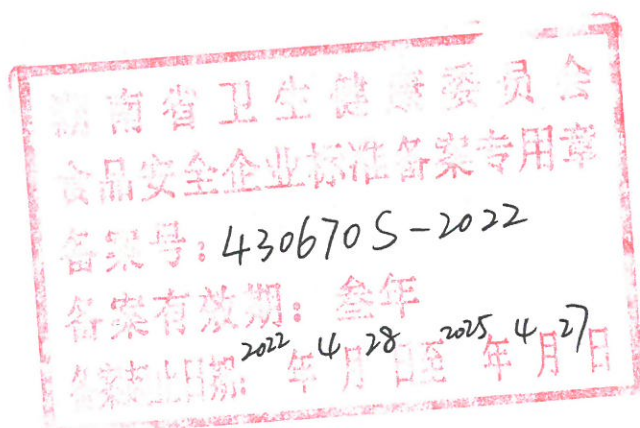 湖南省卫生健康委员会
食品安全企业标准备案专用章
备案号：430670S-2022
备案有效期：叁年
备案起止日期：2022年4月28日至2025年4月27日